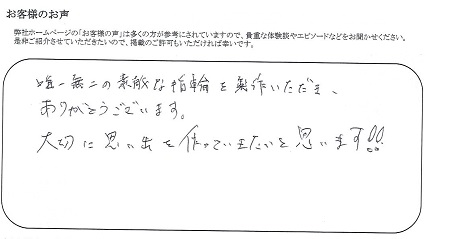 お客様のお声
弊社ホームページの「お客様の声」は多くの方が参考にされていますので、貴重な体験談やエピソードなどをお聞かせください。
是非ご紹介させていただきたいので、掲載のご許可もいただければ幸いです。
唯一無二の素敵な指輪を製作いただき、
ありがとうございます。
大切に思い出を作っていきたいと思います!!